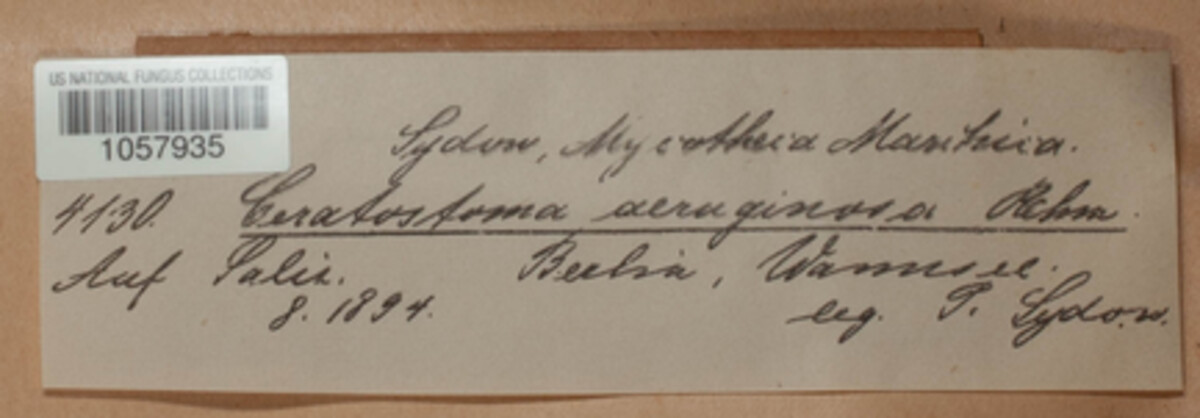 US NATIONAL FUNGUS COLLECTIONS
1057935
Sydow, Mycotheca Marchica.
4130. Ceratostoma aeruginosa Rehm.
Auf Salix. Berlin, Wannsee.
8. 1894. leg. P. Sydow.